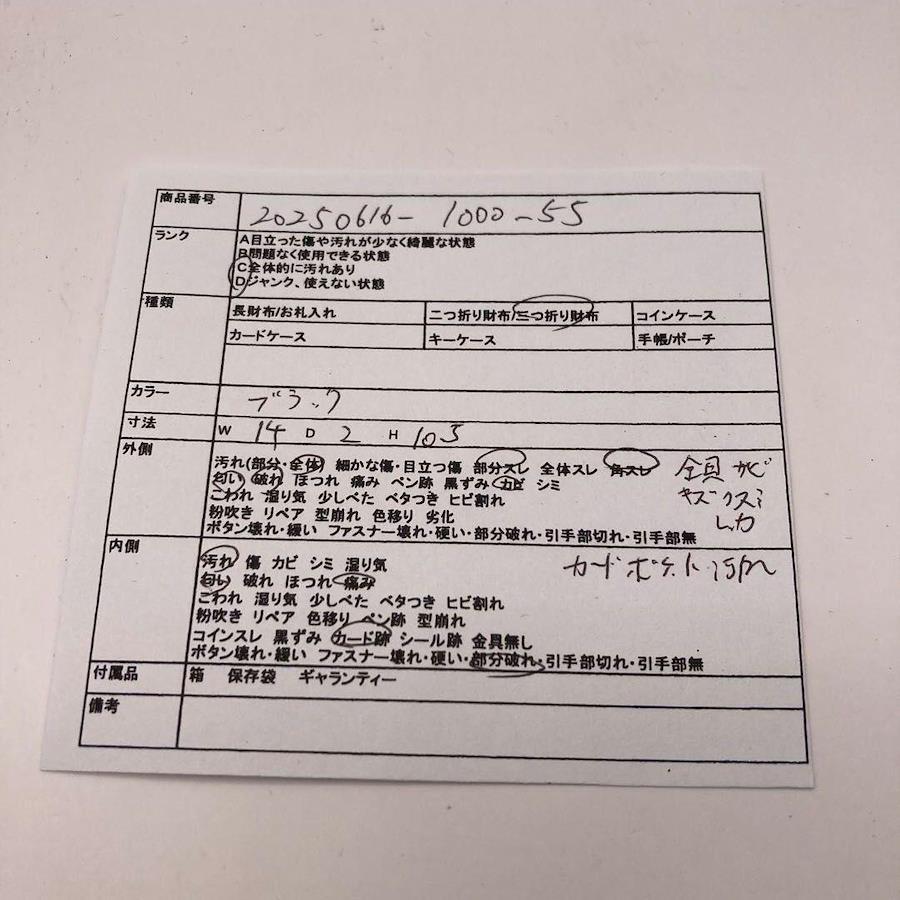 商品番号 20250616- 1000-55
ランク
A目立った傷や汚れが少なく綺麗な状態
B問題なく使用できる状態
C全体的に汚れあり
Dジャンク、使えない状態
種類
長財布/お札入れ 二つ折り財布/三つ折り財布 コインケース
カードケース キーケース 手帳/ポーチ
カラー ブラック
寸法 W 14 D 2 H 10.5
外側
汚れ(部分・全体) 細かな傷・目立つ傷 部分スレ 全体スレ 角スレ 金具サビ
匂い 破れ ほつれ 痛み ペン跡 黒ずみ カビ シミ
こわれ 湿り気 少しべた ベタつき ヒビ割れ
粉吹き リペア 型崩れ 色移り 劣化
ボタン壊れ・緩い ファスナー壊れ・硬い・部分破れ・引手部切れ・引手部無
内側
汚れ 傷 カビ シミ 湿り気 カードポケット汚れ
匂い 破れ ほつれ 痛み
こわれ 湿り気 少しべた ベタつき ヒビ割れ
粉吹き リペア 色移り ペン跡 型崩れ
コインスレ 黒ずみ カード跡 シール跡 金具無し
ボタン壊れ・緩い ファスナー壊れ・硬い・部分破れ・引手部切れ・引手部無
付属品 箱 保存袋 ギャランティー
備考